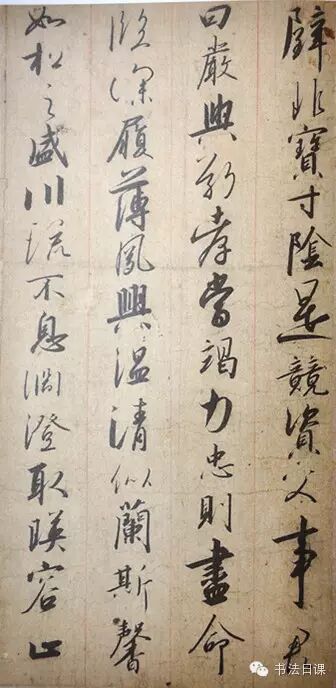 璧非寶寸陰是競資父事君
曰嚴與敬孝當竭力忠則盡命
臨深履薄夙興温凊似蘭斯馨
如松之盛川流不息淵澄取暎容止
书法日课